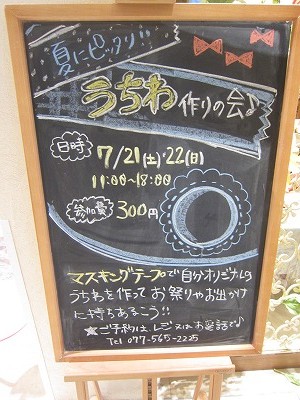 夏にピッタリ!!
うちわ作りの会♪
日時 7/21(土)・22(日)
11:00~18:00
参加費 300円
マスキングテープで自分オリジナルの
うちわを作ってお祭りやお出かけ
に持ちあるこう!!
★ご予約は、レジ又はお電話で♪
Tel 077-565-2225